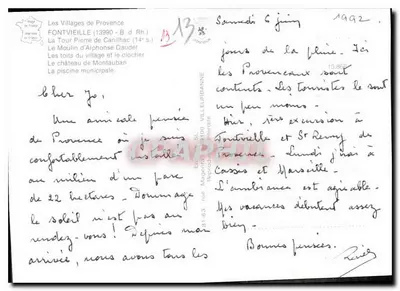 Les Villages de Provence
FONTVIEILLE (13990 - B. d. Rh.)
La Tour Pierre de Canillhac (14e s.)
Le Moulin d'Alphonse Daudet
Les toits du village et le clocher
Le château de Montauban
La piscine municipale
13
13
Samedi 6 juin 1992.
Cher Jo,
Une amicale pensée
de Provence où je suis
confortablement installé
au milieu d'un parc
de 22 hectares. Dommage
le soleil n'est pas au
rendez-vous! Depuis mon
arrivée, nous avons tous les
jours de la pluie. Les
les Provençaux sont
contents. Les touristes le sont
un peu moins.
Hier, excursion à
Fontvieille et St Remy de
Provence. Lundi j'irai à
Cassis et Marseille.
L'ambiance est agréable.
Mes vacances débutent assez
bien.
Bonnes pensées.